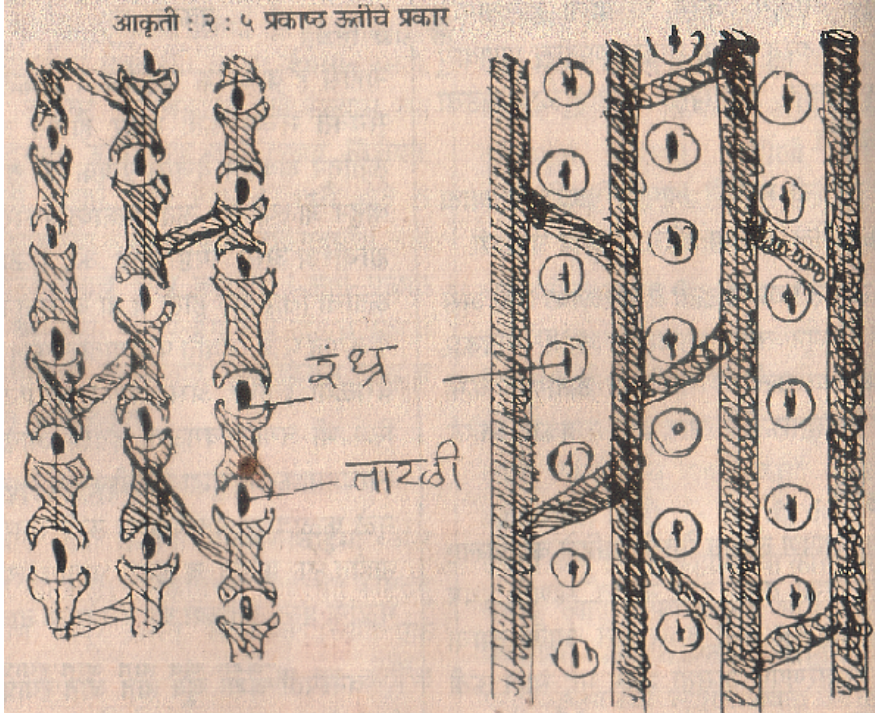 आकृती : २ : ५ प्रकाष्ठ ऊतींचे प्रकार
रंध्र
तारळी